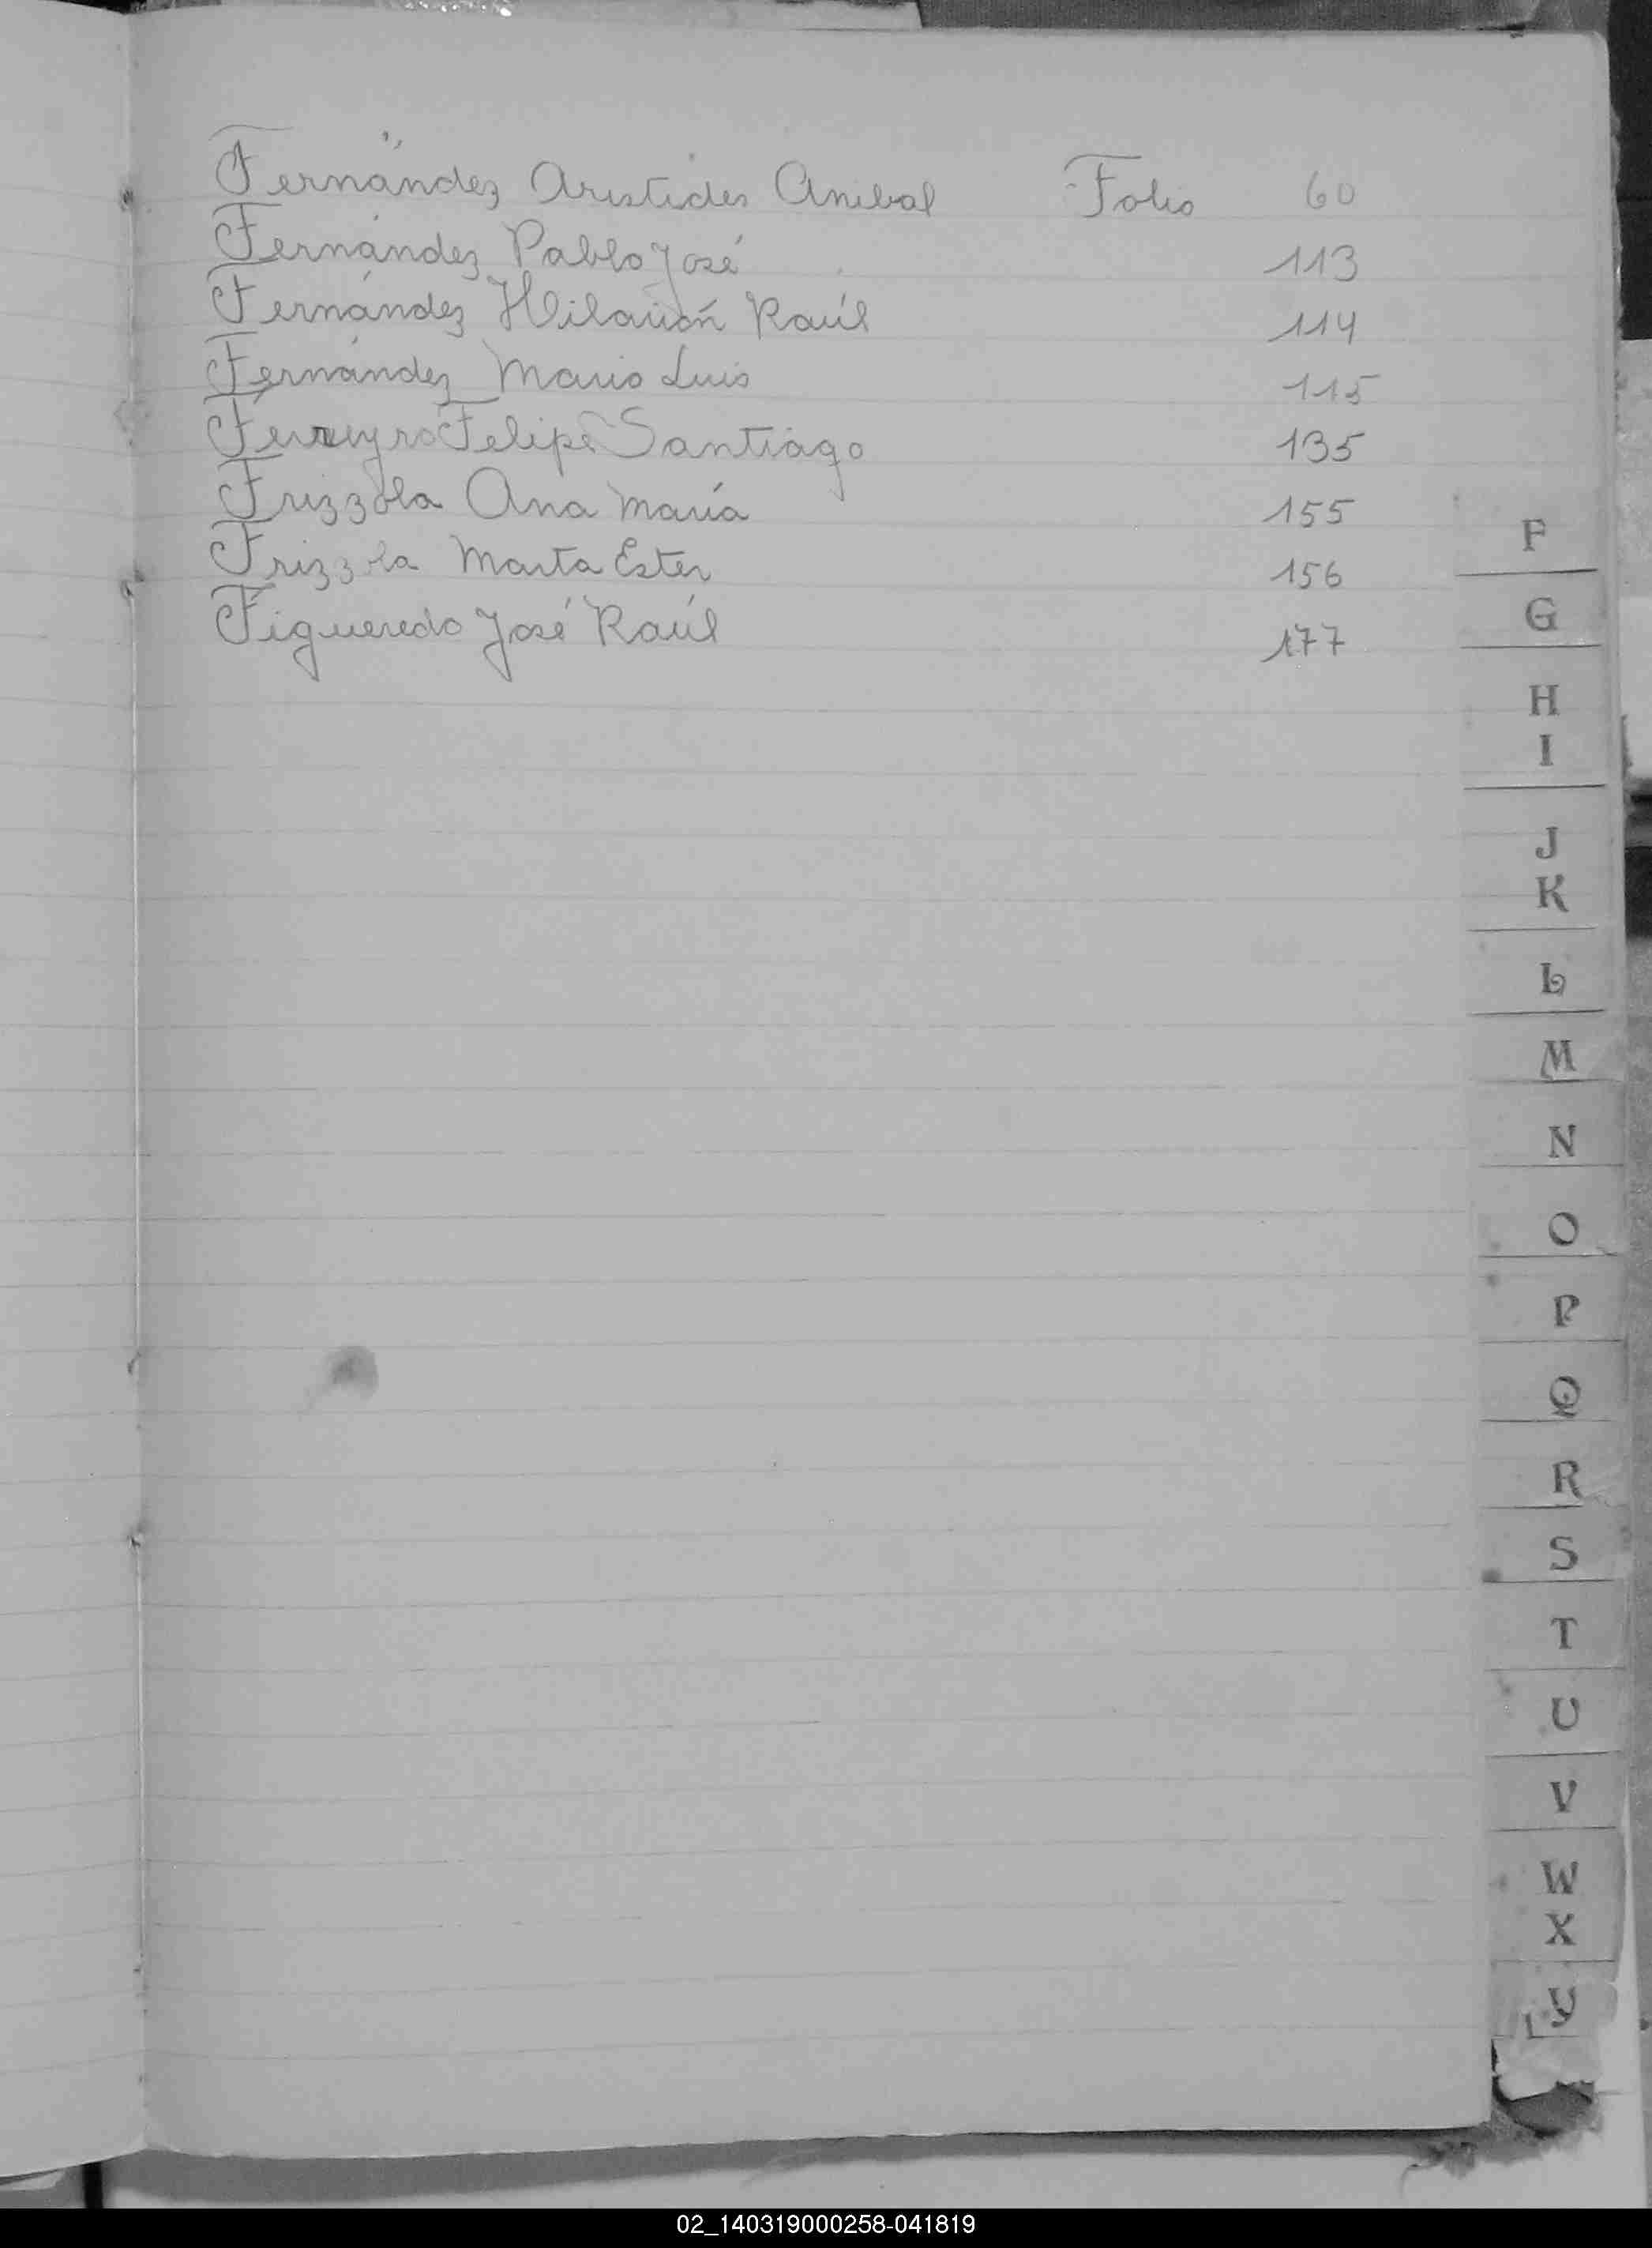 Fernández Aristides Anibal Folio 60
Fernández Pablo José 113
Fernández Hilarión Raúl 114
Fernández Mario Luis 115
Ferreyro Felipe Santiago 135
Frizzola Ana María 155
Frizzola Marta Ester 156
Figueredo José Raúl 177
F
G
H
I
J
K
L
M
N
O
P
Q
R
S
T
U
V
W
X
Y
02_140319000258-041819